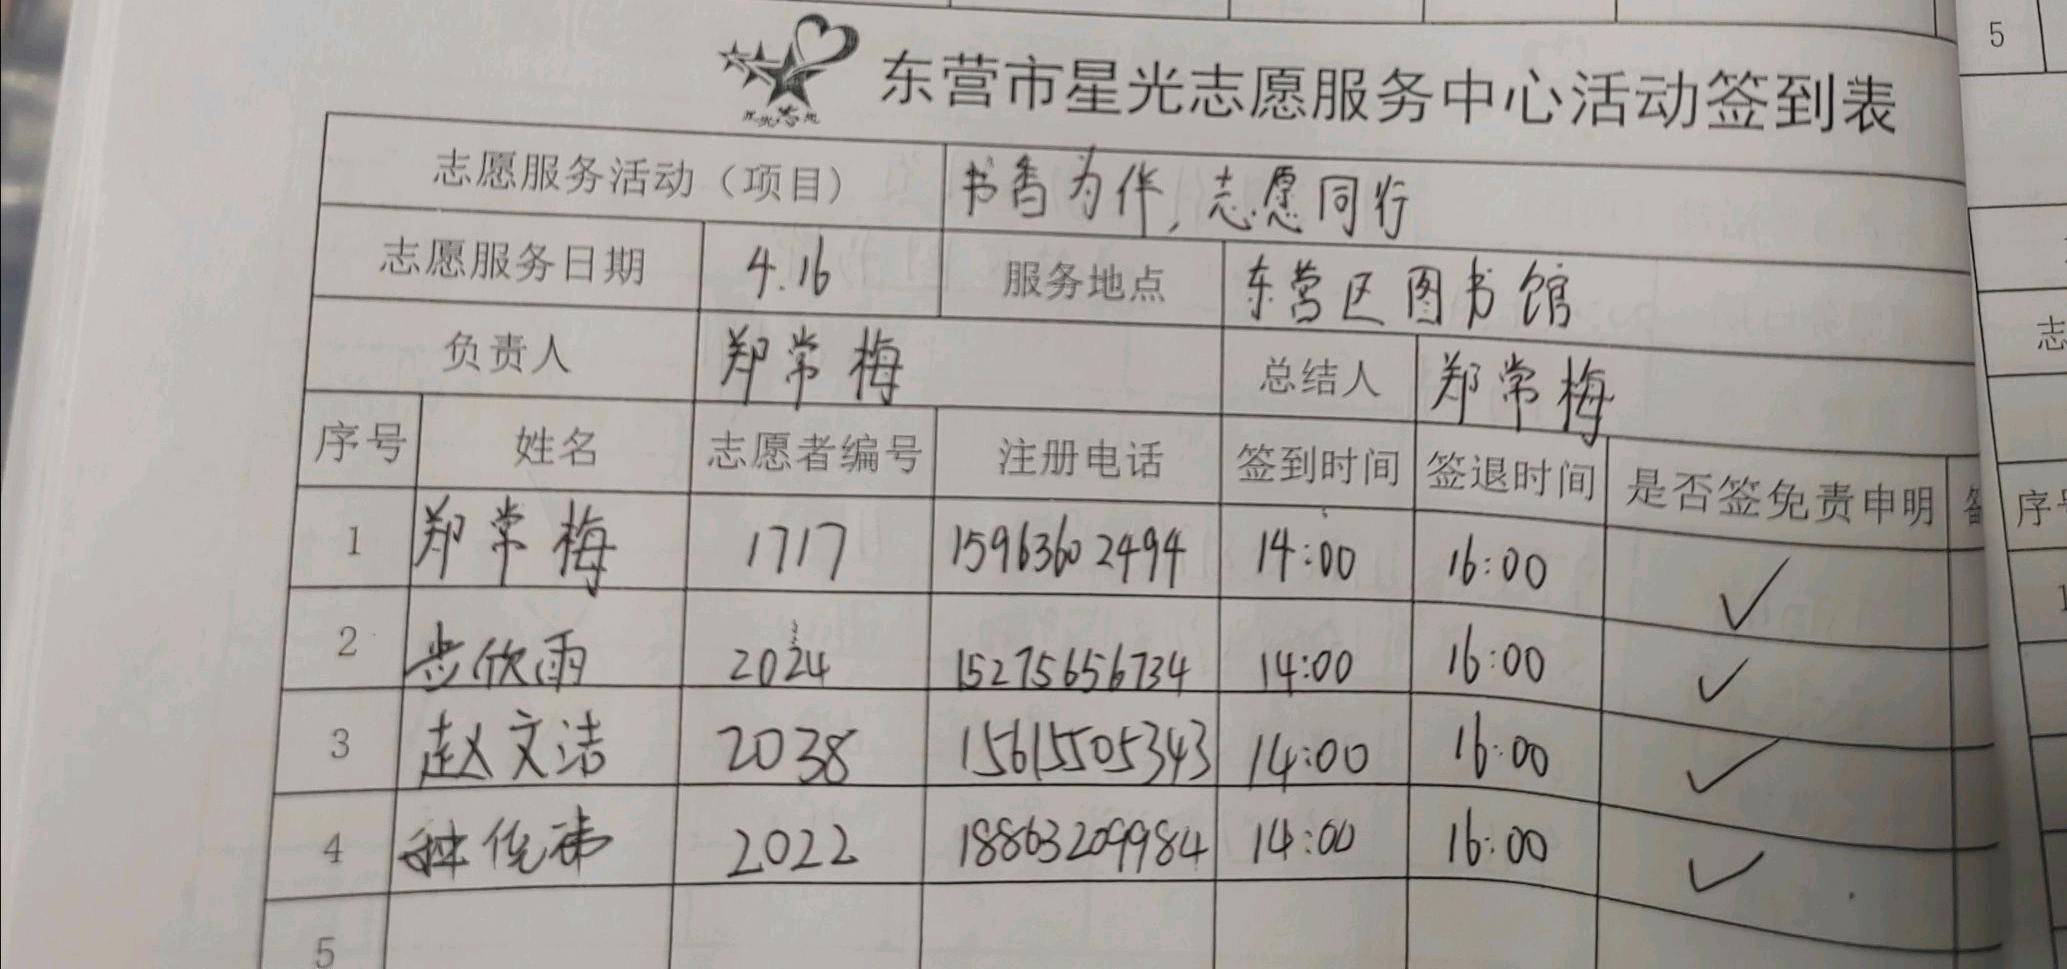 东营市星光志愿服务中心活动签到表
志愿服务活动（项目） 书香为伴，志愿同行
志愿服务日期 4.16 服务地点 东营区图书馆
负责人 郑常梅 总结人 郑常梅
序号 姓名 志愿者编号 注册电话 签到时间 签退时间 是否签免责申明
1 郑常梅 1717 15963602494 14:00 16:00 ✓
2 步欣雨 2024 15275656734 14:00 16:00 ✓
3 赵文洁 2038 15615505343 14:00 16:00 ✓
4 2022 18863209984 14:00 16:00 ✓
5
5
志
序号
1